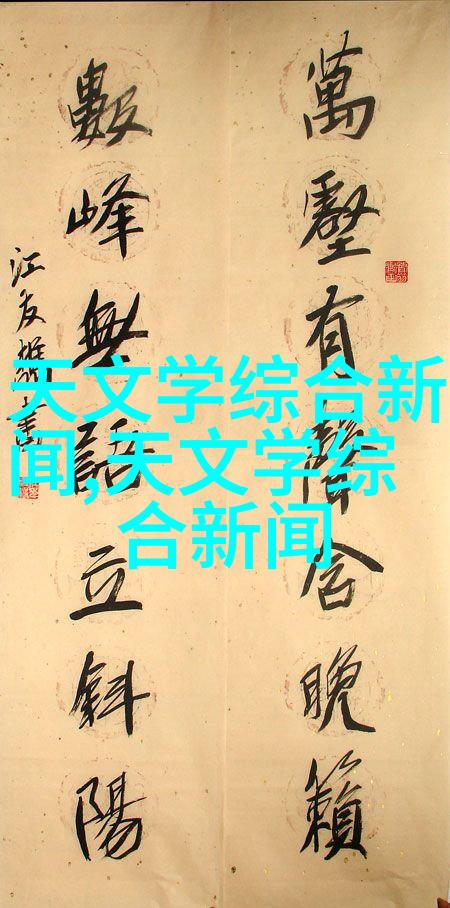 萬壑有聲含晚籟
數峰無語立斜陽
江友樵書
天文学综合新
闻,天文学综
合新闻